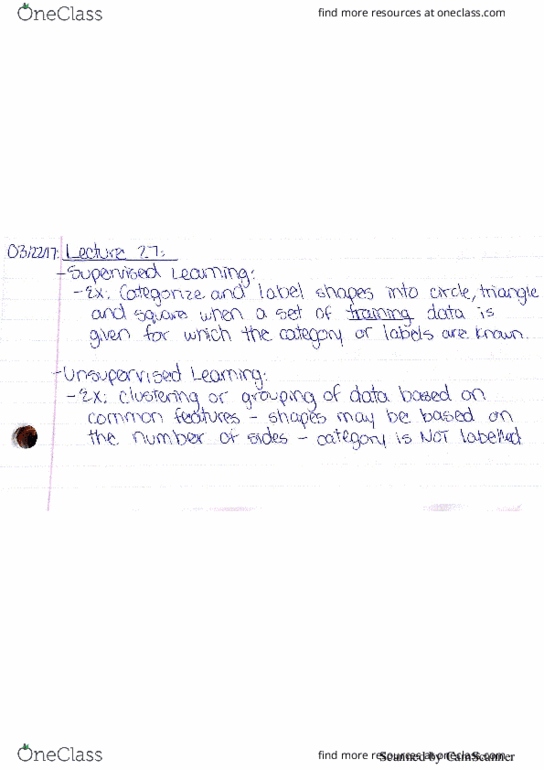 OneClass
find more resources at oneclass.com
03/22/17: Lecture 27:
- Supervised Learning:
- Ex: Categorize and label shapes into circle, triangle
and square when a set of training data is
given for which the category or labels are known.
- Unsupervised Learning:
- Ex: clustering or grouping of data based on
common features - shapes may be based on
the number of sides - category is NOT labelled
OneClass
find more resources at oneclass.com
Scanned by CamScanner